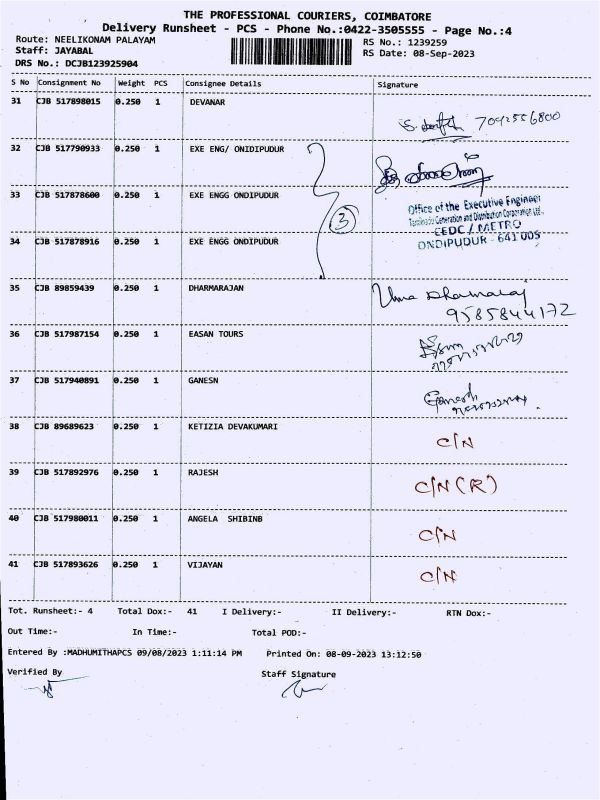 THE PROFESSIONAL COURIERS, COIMBATORE
Delivery Runsheet - PCS - Phone No.:0422-3505555 - Page No.:4
Route: NEELIKONAM PALAYAM
RS No.: 1239259
Staff: JAYABAL
RS Date: 08-Sep-2023
DRS No.: DCJB123925904
S No Consignment No Weight PCS Consignee Details Signature
31 CJB 517898015 0.250 1 DEVANAR
32 CJB 517790933 0.250 1 EXE ENG/ ONIDIPUDUR
33 CJB 517878600 0.250 1 EXE ENGG ONDIPUDUR
3
Office of the Executive Engineer
Tamilnadu Generation and Distribution Corporation Ltd.,
CEDC / METRO
ONDIPUDUR - 641 005
34 CJB 517878916 0.250 1 EXE ENGG ONDIPUDUR
35 CJB 89859439 0.250 1 DHARMARAJAN Uma Dharmaraj
9585844172
36 CJB 517987154 0.250 1 EASAN TOURS
37 CJB 517940891 0.250 1 GANESN Ganesh
38 CJB 89689623 0.250 1 KETIZIA DEVAKUMARI C/N
39 CJB 517892976 0.250 1 RAJESH C/N (R)
40 CJB 517980011 0.250 1 ANGELA SHIBINB C/N
41 CJB 517893626 0.250 1 VIJAYAN C/N
Tot. Runsheet:- 4 Total Dox:- 41 I Delivery:- II Delivery:- RTN Dox:-
Out Time:- In Time:- Total POD:-
Entered By :MADHUMITHAPCS 09/08/2023 1:11:14 PM Printed On: 08-09-2023 13:12:50
Verified By Staff Signature